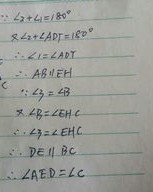 ∵ ∠2+∠1=180°
又∠2+∠ADT=180°
∴ ∠1=∠ADT
∴ AB∥EH
∴ ∠3=∠B
又 ∠B=∠EHC
∴ ∠3=∠EHC
∴ DE∥BC
∴ ∠AED=∠C